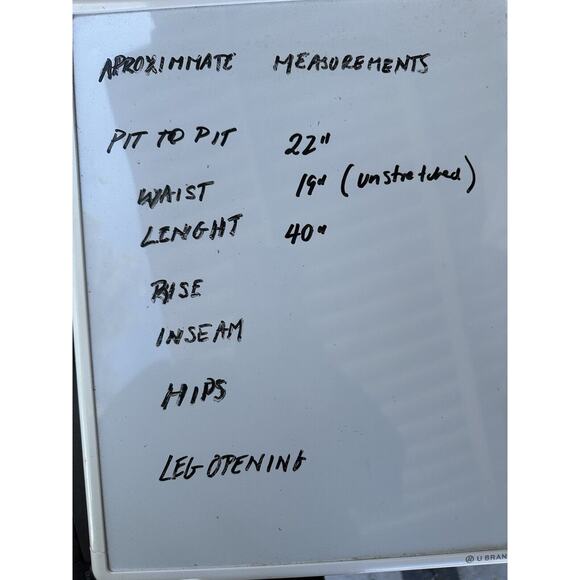 APROXIMMATE MEASUREMENTS
PIT TO PIT 22"
WAIST 19" (unstretched)
LENGHT 40"
RISE
INSEAM
HIPS
LEG OPENING
U BRAN